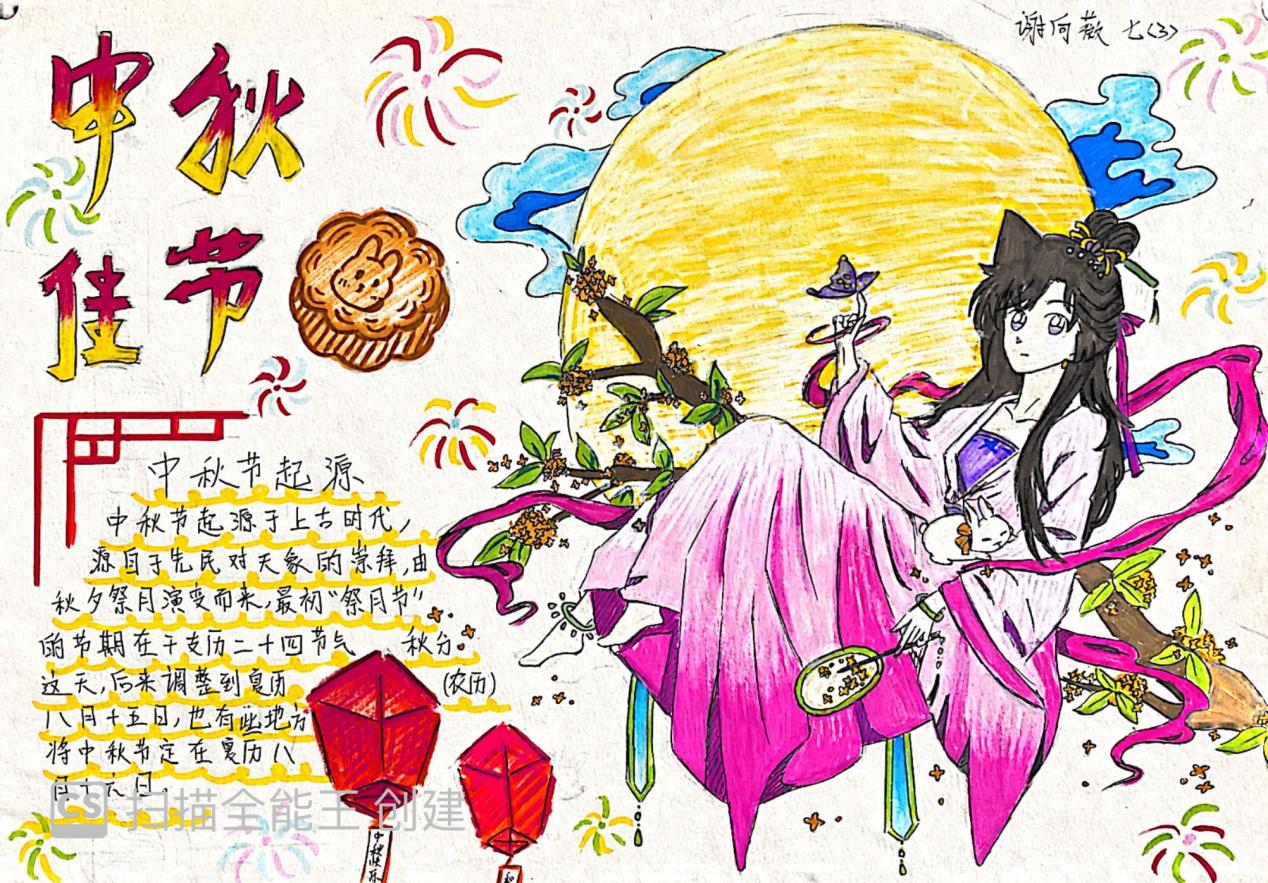 谢向薇 七(3)
中秋
佳节
中秋节起源
中秋节起源于上古时代,
源自于先民对天象的崇拜,由
秋夕祭月演变而来,最初“祭月节”
的节期在干支历二十四节气 秋分
这天,后来调整到夏历 (农历)
八月十五日,也有些地方
将中秋节定在夏历八
月十六日。
CS 扫描全能王 创建
中秋快乐